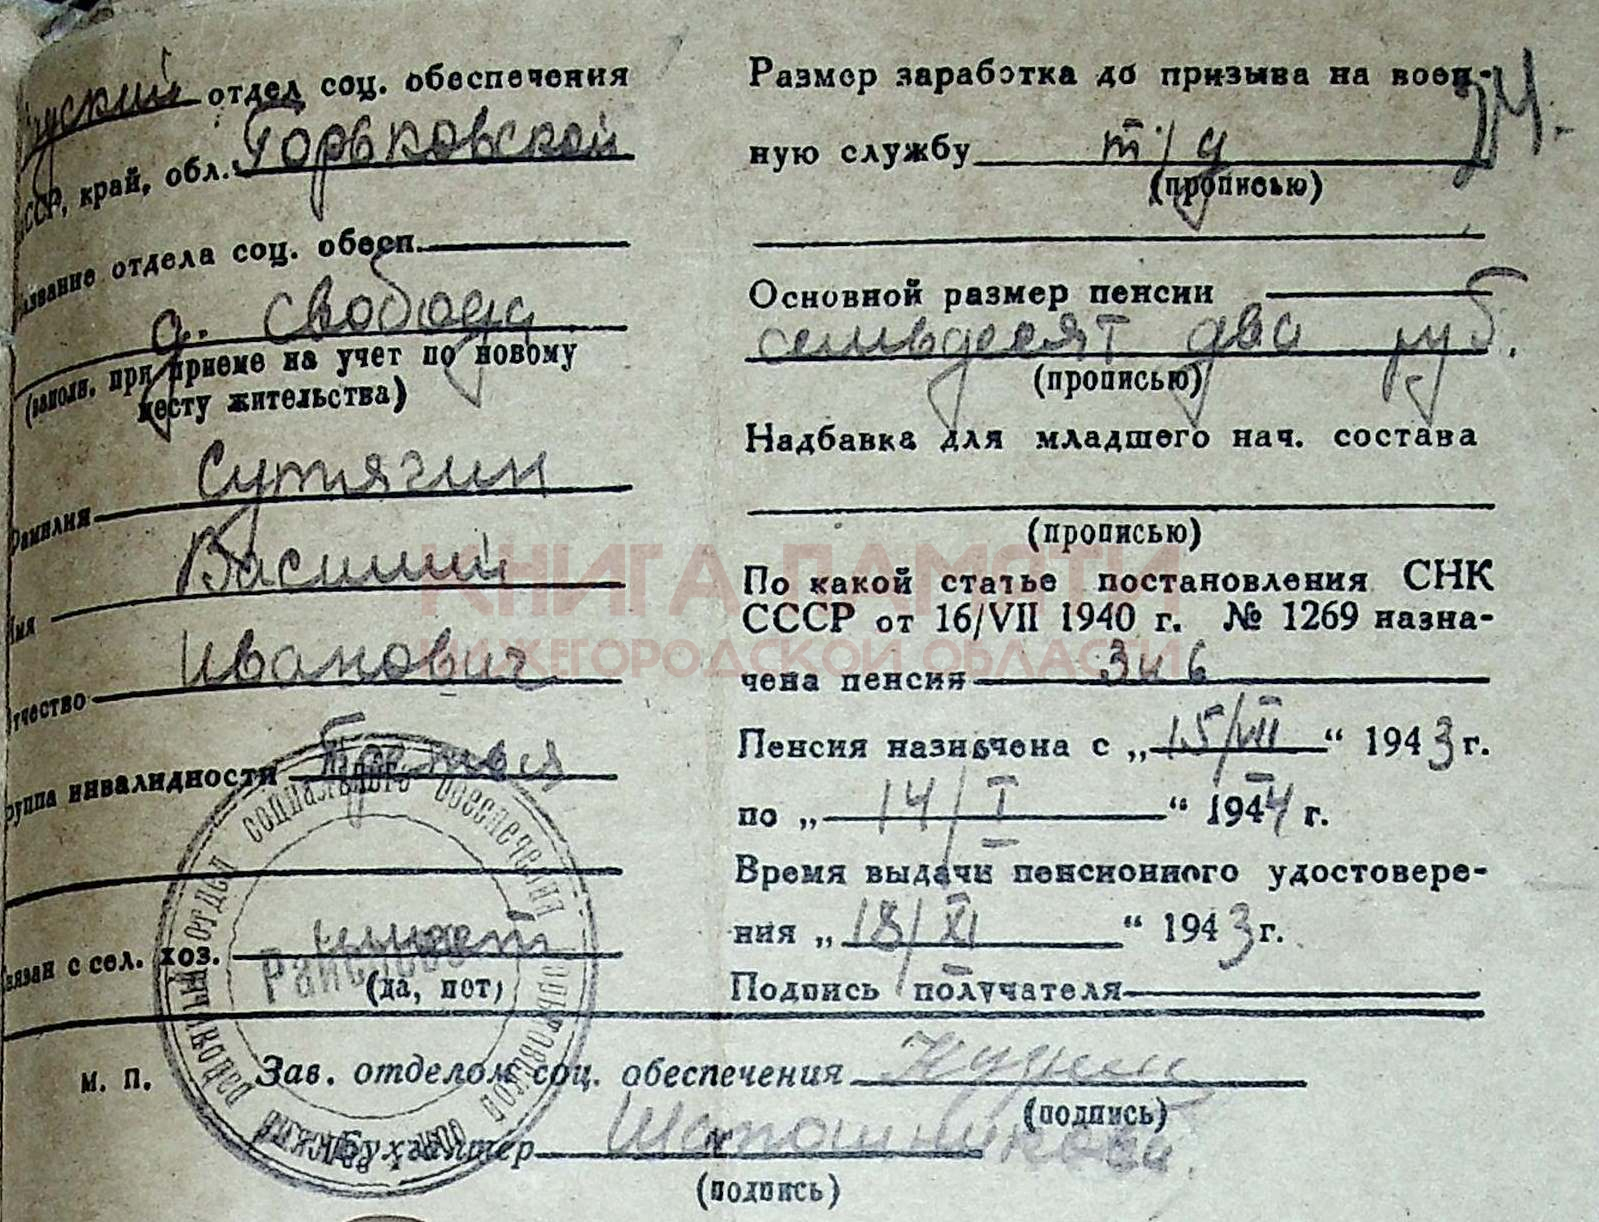 отдел соц. обеспечения
СССР, край, обл. Горьковской
название отдела соц. обесп.
д. Свобода
(заполн. при приеме на учет по новому
месту жительства)
Фамилия Сутягин
Имя Василий
Отчество Иванович
Группа инвалидности Третья
Связан с сел. хоз.
(да, нет)
М. П.
Зав. отделом соц. обеспечения
(подпись)
Бухгалтер
(подпись)
24.
Размер заработка до призыва на воен-
ную службу т/д
(прописью)
Основной размер пенсии
семьдесят два руб.
(прописью)
Надбавка для младшего нач. состава
(прописью)
По какой статье постановления СНК
СССР от 16/VII 1940 г. № 1269 назна-
чена пенсия 3 и 6
Пенсия назначена с „15/VII“ 1943 г.
по „14/I“ 1944 г.
Время выдачи пенсионного удостовере-
ния „18/XI“ 1943 г.
Подпись получателя
КНИГА ПАМЯТИ
НИЖЕГОРОДСКОЙ ОБЛАСТИ
районный отдел социального обеспечения